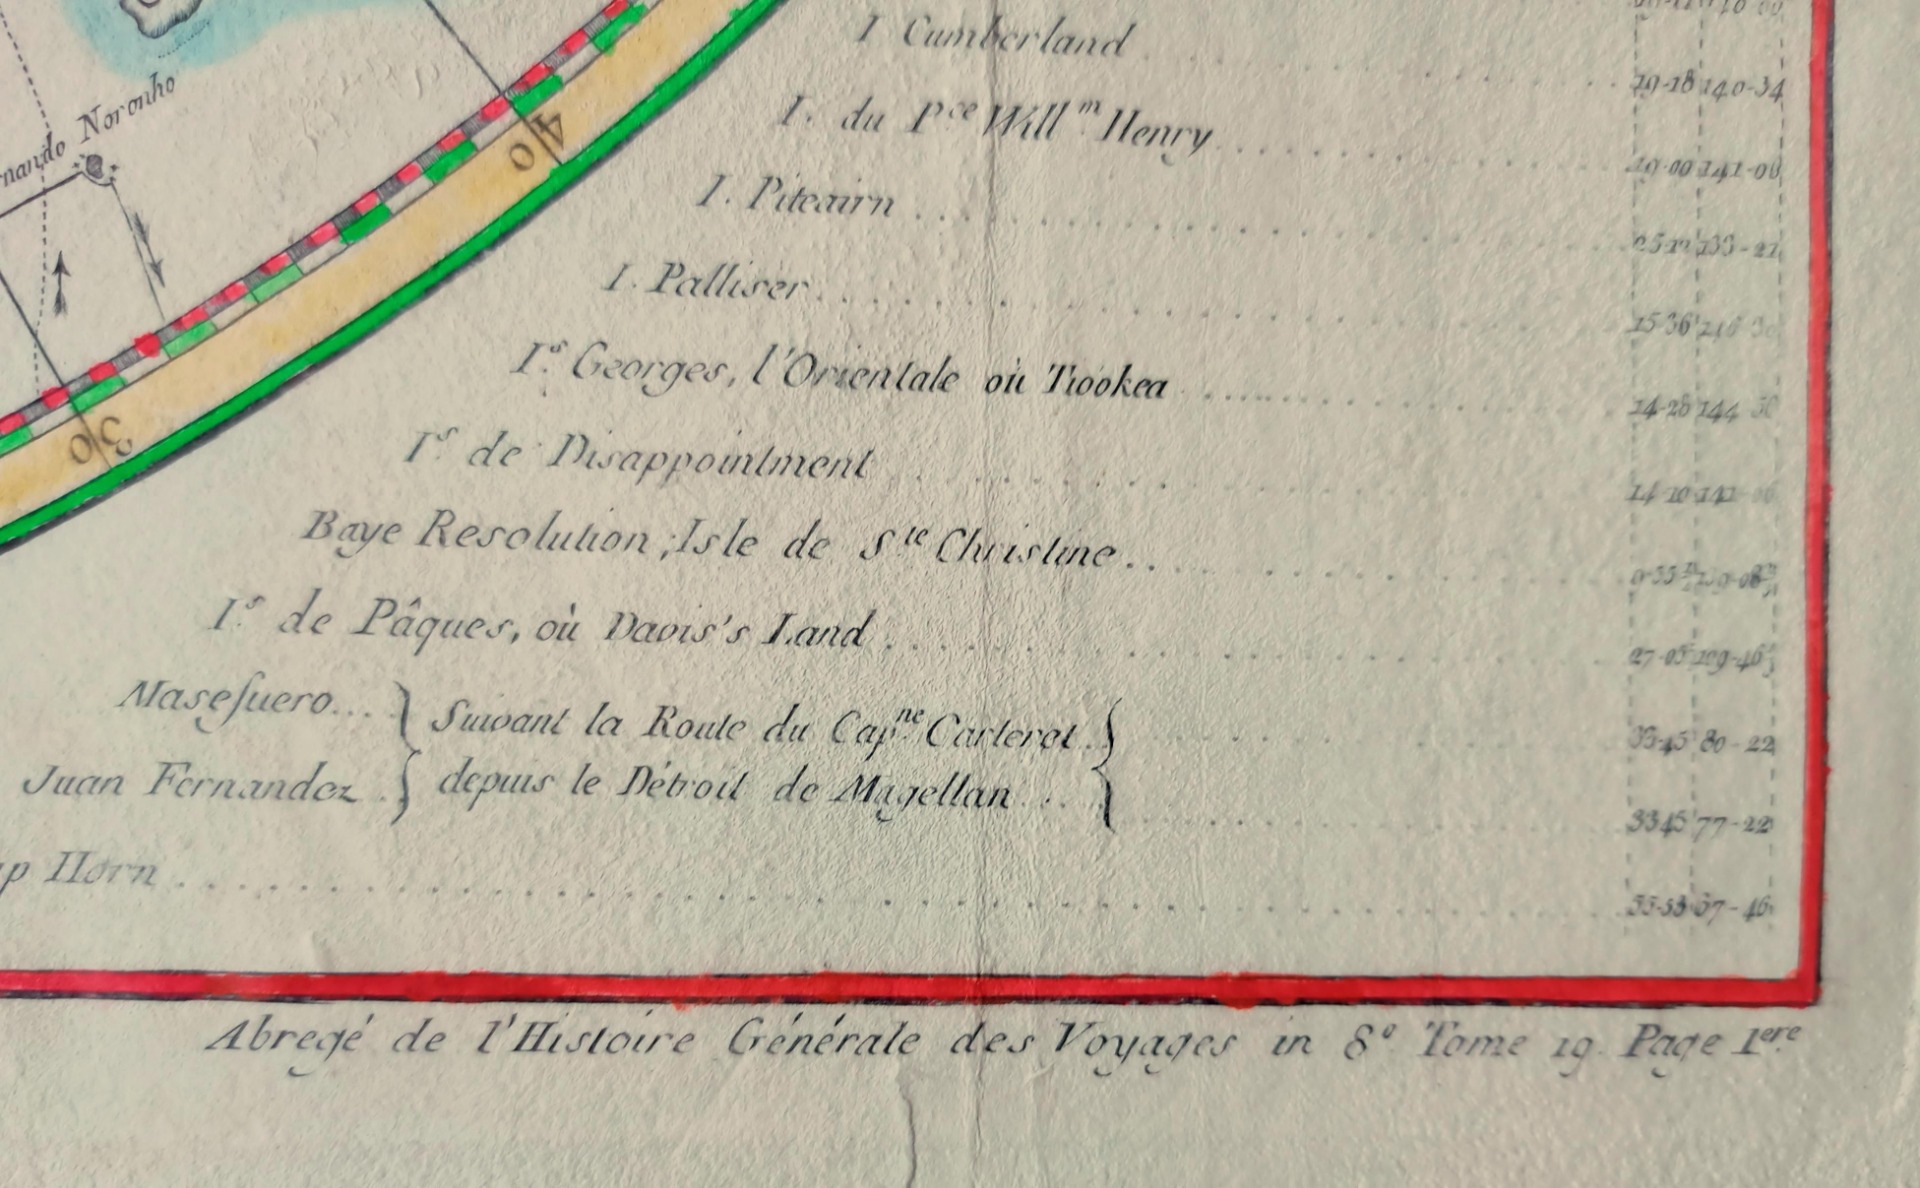 I Cumberland 19-18 140-34
I. du Pce Willm Henry 19-00 141-06
I. Pitcairn 25-12 133-21
I. Palliser 15-36 146-30
Is Georges, l'Orientale où Tiookea 14-28 144
Is de Disappointment 14-10 141
Baye Resolution; Isle de Ste Christine
Is de Pâques, où Davis's Land 27-05 109-46
Masefuero... } Suivant la Route du Capne Carteret { 33-45 80-22
Juan Fernandez } depuis le Détroit de Magellan { 33-45 77-22
p Horn 55-58 67-46
nando Noronho
40
30
Abregé de l'Histoire Générale des Voyages in 8° Tome 19. Page 1ere